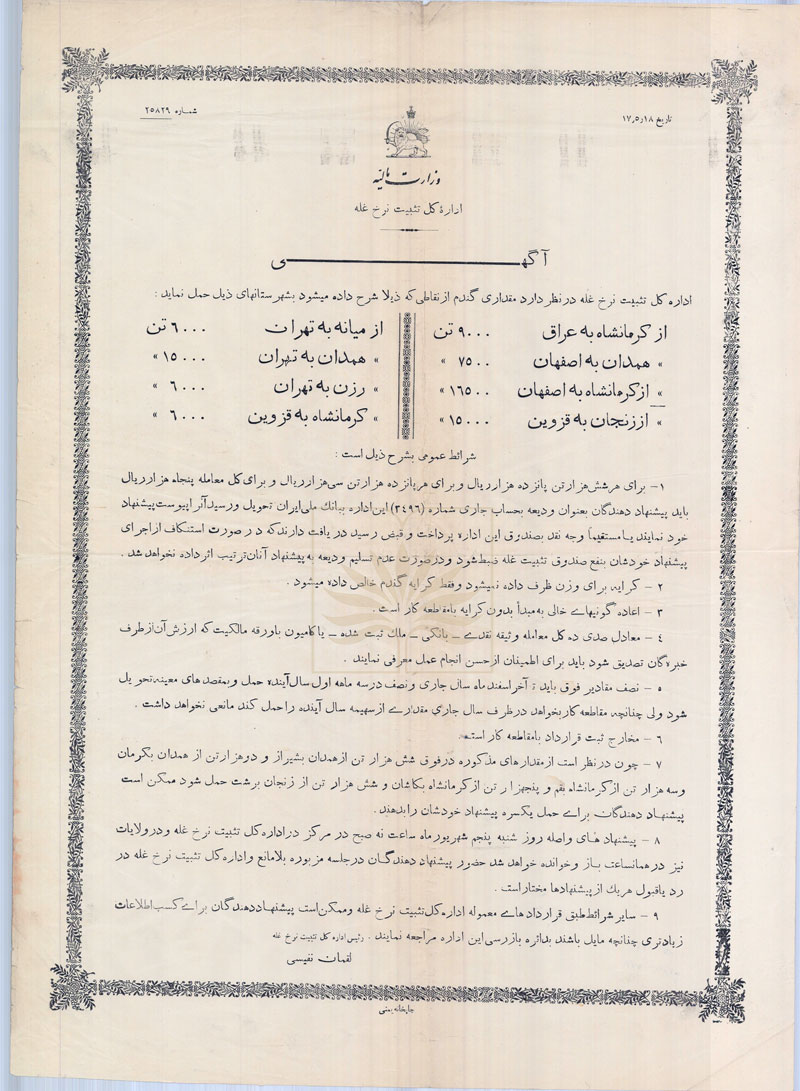 تاریخ ۱۷ر۵ر۱۸
شماره ۲۵۸۲۹
وزارت مالیه
ادارۀ کل تثبیت نرخ غله
آگهی
اداره کل تثبیت نرخ غله در نظر دارد مقداری گندم از نقاطی که ذیلا شرح داده میشود بشهرستانهای ذیل حمل نماید :
از کرمانشاه به عراق ۹۰۰۰ تن
» همدان به اصفهان ۷۵۰۰ »
» از کرمانشاه به اصفهان ۱٦۵۰۰ »
» از زنجان به قزوین ۱۵۰۰۰ »
از میانه به تهران ٦۰۰۰ تن
» همدان به تهران ۱۵۰۰۰ »
» رزن به تهران ٦۰۰۰ »
» کرمانشاه به قزوین ٦۰۰۰ »
شرائط عمومی بشرح ذیل است :
۱ – برای هر شش هزار تن پانزده هزار ریال و برای هر پانزده هزار تن سی هزار ریال و برای کل معامله پنجاه هزار ریال
باید پیشنهاد دهندگان بعنوان ودیعه بحساب جاری شماره (۳٤۹٦) این اداره ببانك ملی ایران تحویل و رسید آنرا پیوست پیشنهاد
خود نمایند یا مستقیماً وجه نقد بصندوق این اداره پرداخت و قبض رسید دریافت دارند که در صورت استنکاف از اجرای
پیشنهاد خودشان بنفع صندوق تثبیت غله ضبط شود و در صورت عدم تسلیم ودیعه به پیشنهاد آنان ترتیب اثر داده نخواهد شد .
۲ – کرایه برای وزن ظرف داده نمیشود و فقط کرایه گندم خالص داده میشود .
۳ – اعاده گونیهای خالی به مبدأ بدون کرایه بامقاطعه کار است .
٤ – معادل صدی ده کل معامله وثیقه نقدی – بانکی – ملك ثبت شده – یا کامیون باورقه مالکیت که ارزش آن از طرف
خبرگان تصدیق شود باید برای اطمینان از حسن انجام عمل معرفی نمایند .
۵ – نصف مقادیر فوق باید تا آخر اسفند ماه سال جاری و نصف در سه ماهه اول سال آینده حمل و بمقصدهای معینه تحویل
شود ولی چنانچه مقاطعه کار بخواهد در ظرف سال جاری مقداری از سهمیه سال آینده را حمل کند مانعی نخواهد داشت .
٦ – مخارج ثبت قرارداد بامقاطعه کار است .
۷ – چون در نظر است از مقدارهای مذکوره در فوق شش هزار تن از همدان بشیراز و دو هزار تن از همدان بکرمان
وسه هزار تن از کرمانشاه بقم و پنجهزار تن از کرمانشاه بکاشان و شش هزار تن از زنجان برشت حمل شود ممکن است
پیشنهاد دهندگان برای حمل یکسره پیشنهاد خودشان را بدهند .
۸ – پیشنهاد های واصله روز شنبه پنجم شهریور ماه ساعت نه صبح در مرکز در اداره کل تثبیت نرخ غله و در ولایات
نیز در همانساعت باز و خوانده خواهد شد حضور پیشنهاد دهندگان در جلسه مزبوره بلامانع و اداره کل تثبیت نرخ غله در
رد یا قبول هریك از پیشنهادها مختار است .
۹ – سایر شرائط طبق قرارداد های معموله اداره کل تثبیت نرخ غله و ممکن است پیشنهاد دهندگان برای کسب اطلاعات
زیادتری چنانچه مایل باشند بدائره بازرسی این اداره مراجعه نمایند .
رئیس اداره کل تثبیت نرخ غله
لقمان نفیسی
چاپخانه بهمنی